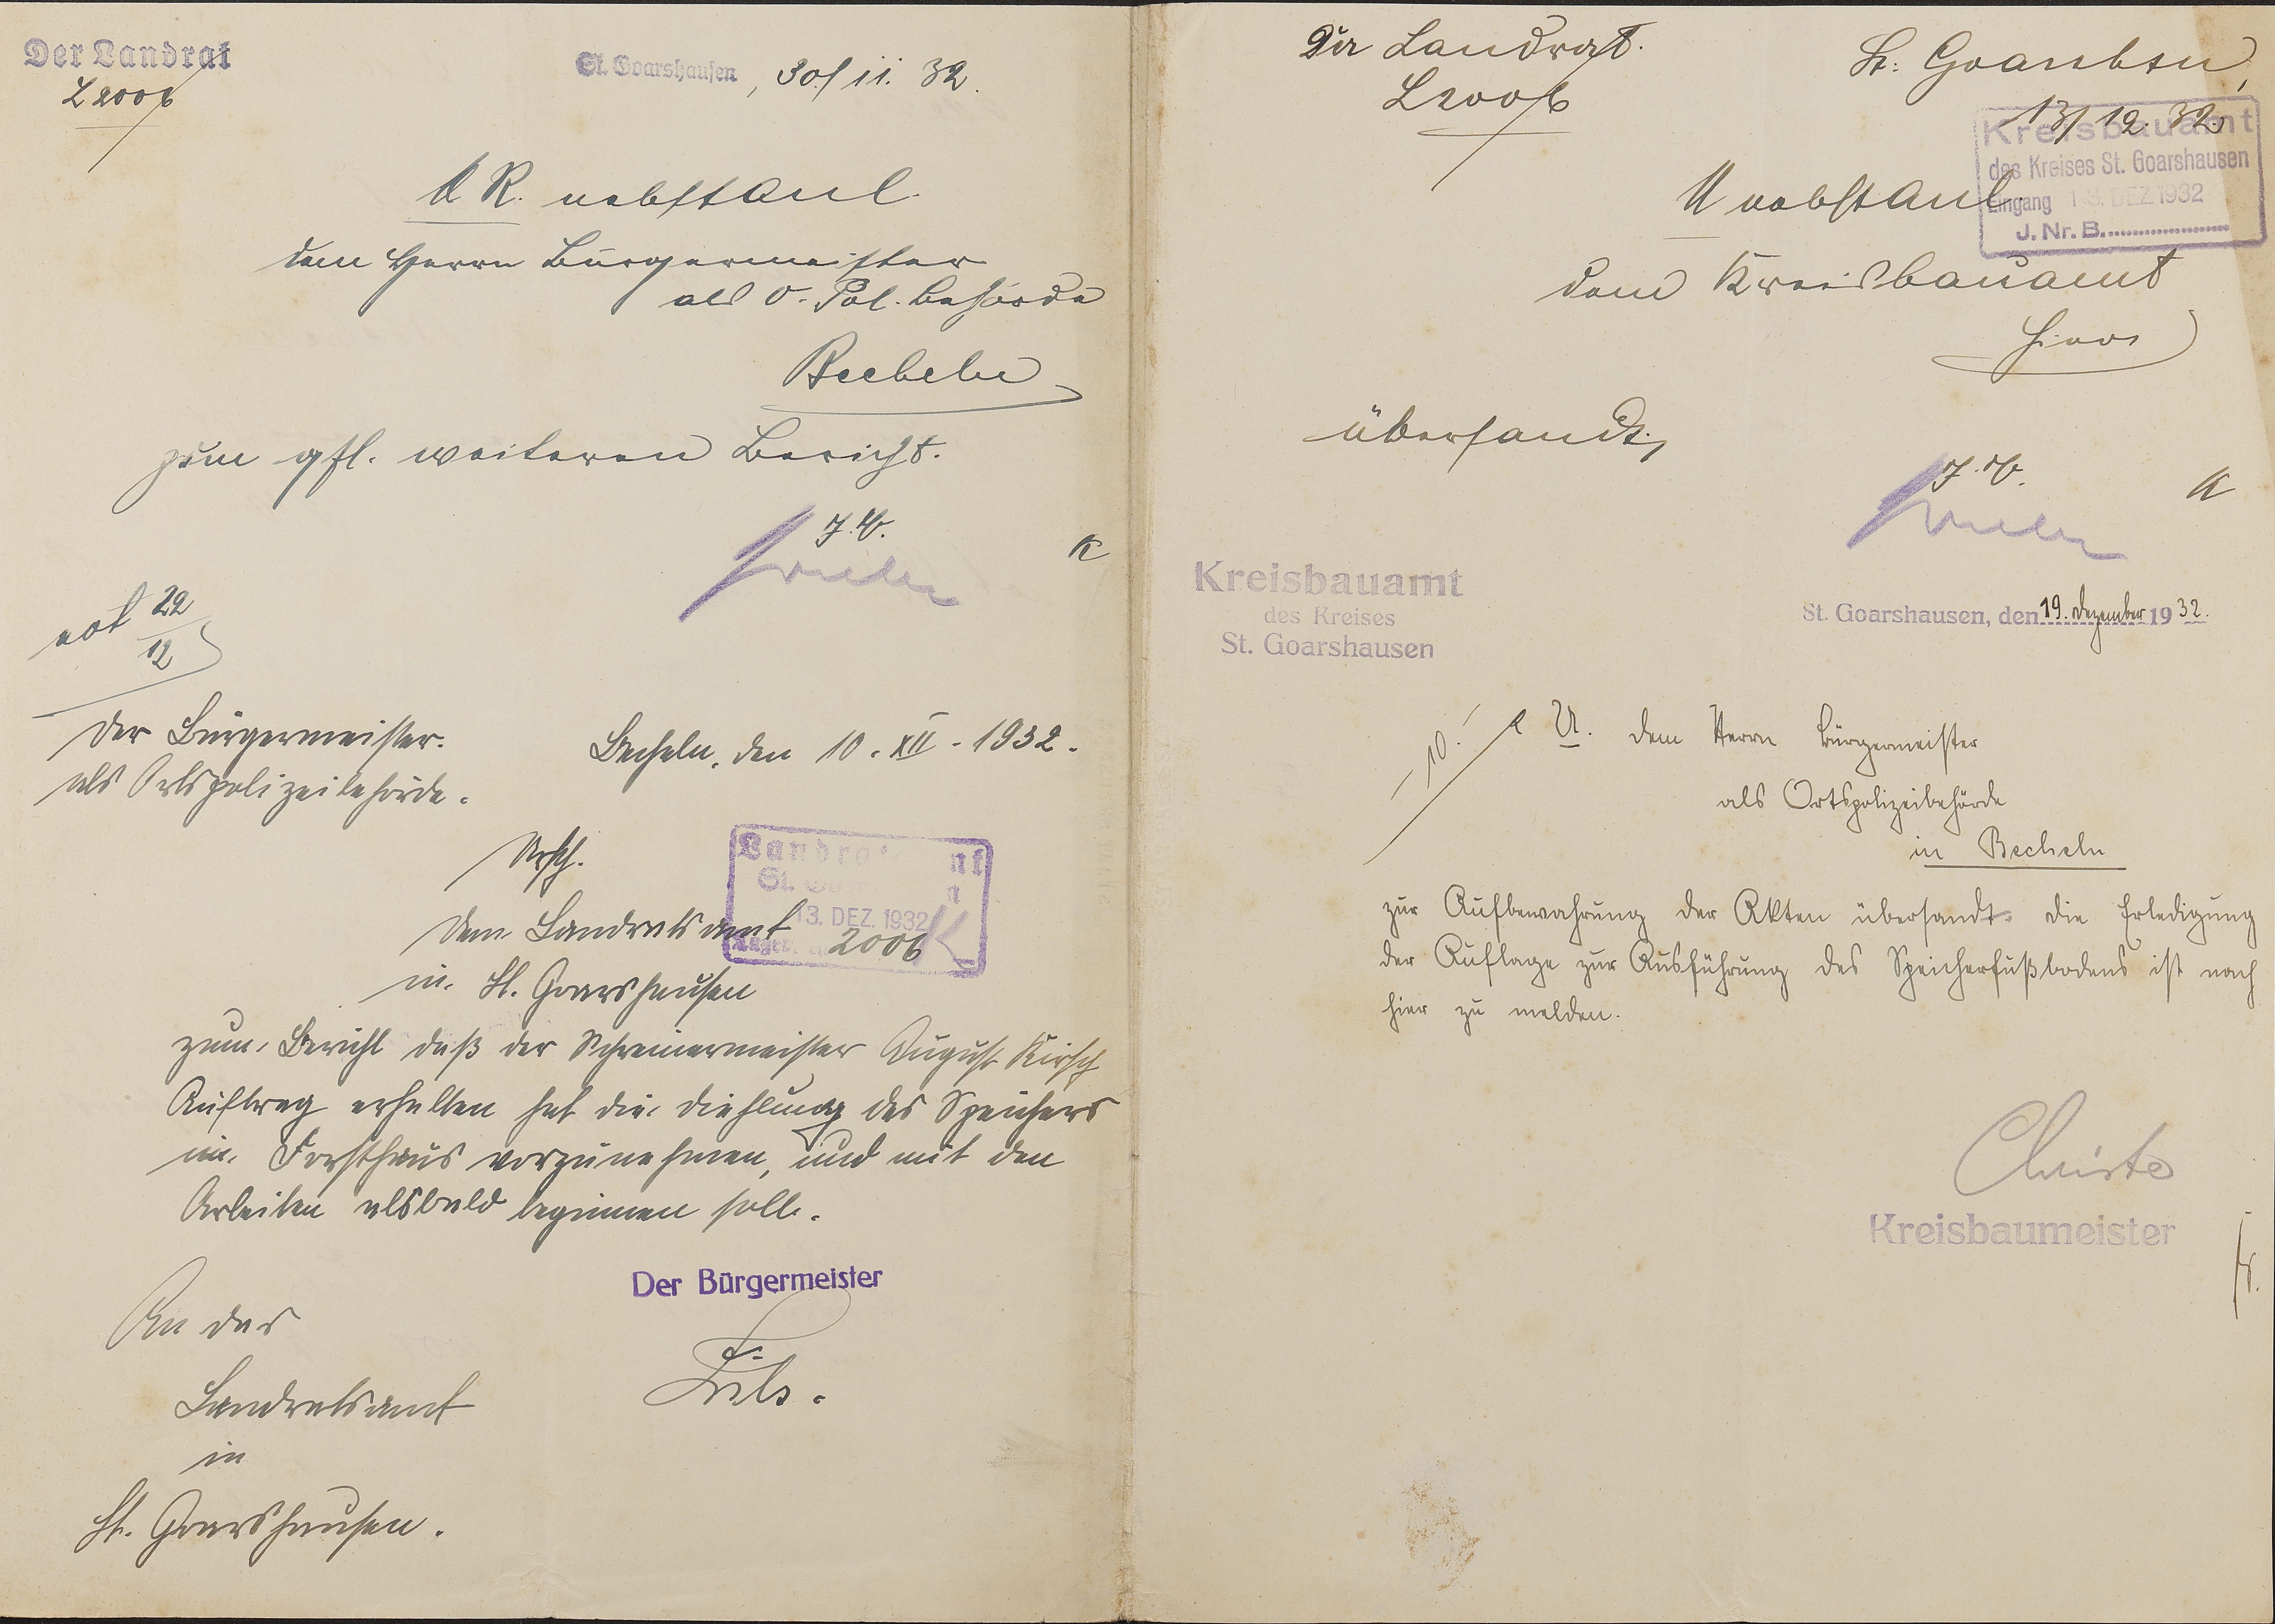 Der Landrat
L 2006
St. Goarshausen, 30/11. 32.
U R. nebst Anl.
dem Herrn Bürgermeister
als O. Pol. Behörde
Becheln
zum gfl. weiteren Bericht.
J. V.
K
not 22/12
Der Bürgermeister.
als Ortspolizeibehörde.
Becheln, den 10. XII. 1932.
Urschr.
dem Landratsamt
in St. Goarshausen
Landrat
St.
13. DEZ. 1932
2006
K
zum Bericht daß der Schreinermeister August Kirsch
Auftrag erhalten hat die Diehlung des Speichers
im Forsthaus vorzunehmen, und mit den
Arbeiten alsbald beginnen soll.
Der Bürgermeister
An das
Landratsamt
in
St. Goarshausen.
Der Landrat.
L 2006
St. Goarshsn,
13/12. 32.
Kreisbauamt
des Kreises St. Goarshausen
Eingang 13. DEZ. 1932
J. Nr. B.
U nebst Anl.
dem Kreisbauamt
hier
übersandt.
J. V.
K
Kreisbauamt
des Kreises
St. Goarshausen
St. Goarshausen, den 19. Dezember 1932.
U. dem Herrn Bürgermeister
als Ortspolizeibehörde
in Becheln
zur Aufbewahrung der Akten übersandt. Die Erledigung
der Auflage zur Ausführung des Speicherfußbodens ist nach
hier zu melden.
Christ
Kreisbaumeister